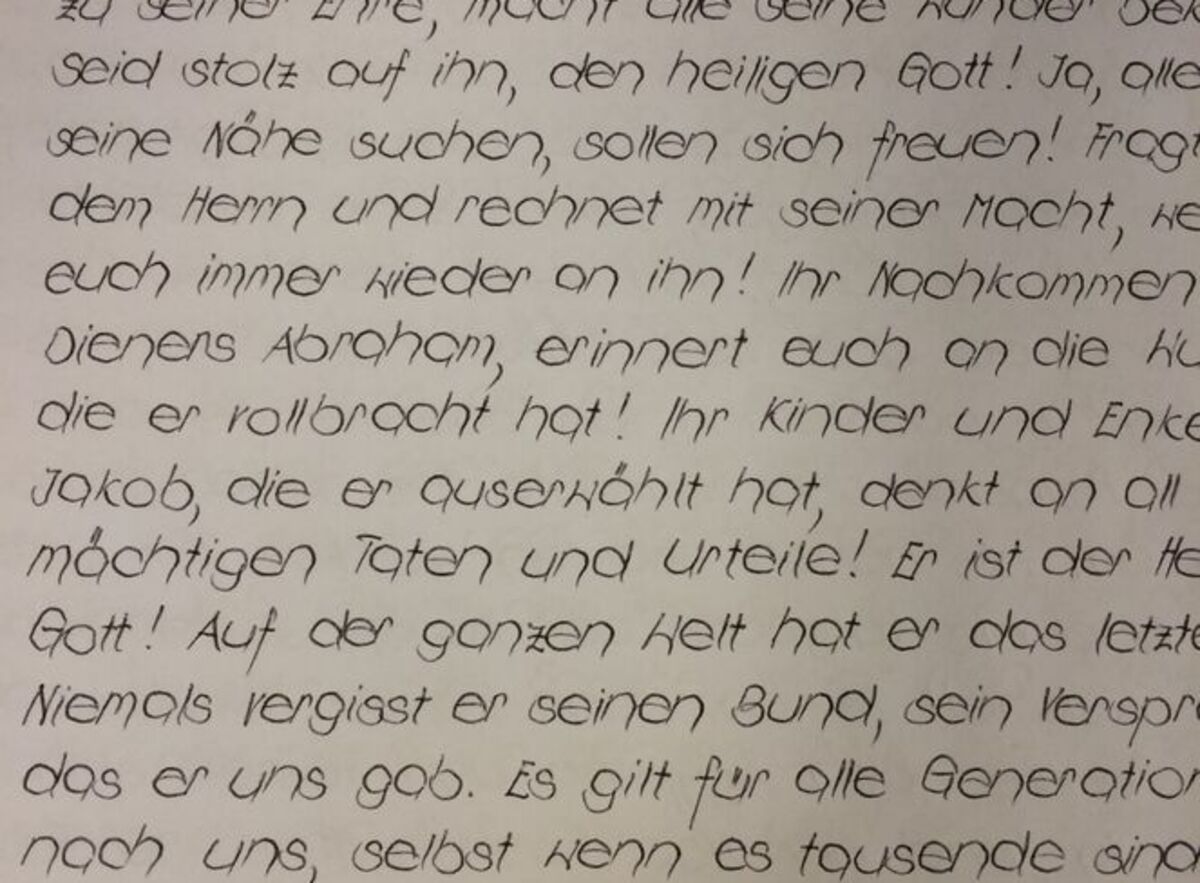 zu seiner Ehre, macht alle seine Wunder
seid stolz auf ihn, den heiligen Gott! Ja, alle
seine Nähe suchen, sollen sich freuen! Fragt
dem Herrn und rechnet mit seiner Macht, we
euch immer wieder an ihn! Ihr Nachkommen
Dienens Abraham, erinnert euch an die Wu
die er vollbracht hat! Ihr Kinder und Enke
Jakob, die er auserwählt hat, denkt an all
mächtigen Taten und Urteile! Er ist der He
Gott! Auf der ganzen Welt hat er das letzte
Niemals vergisst er seinen Bund, sein Verspr
das er uns gab. Es gilt für alle Generation
nach uns, selbst wenn es tausende sind